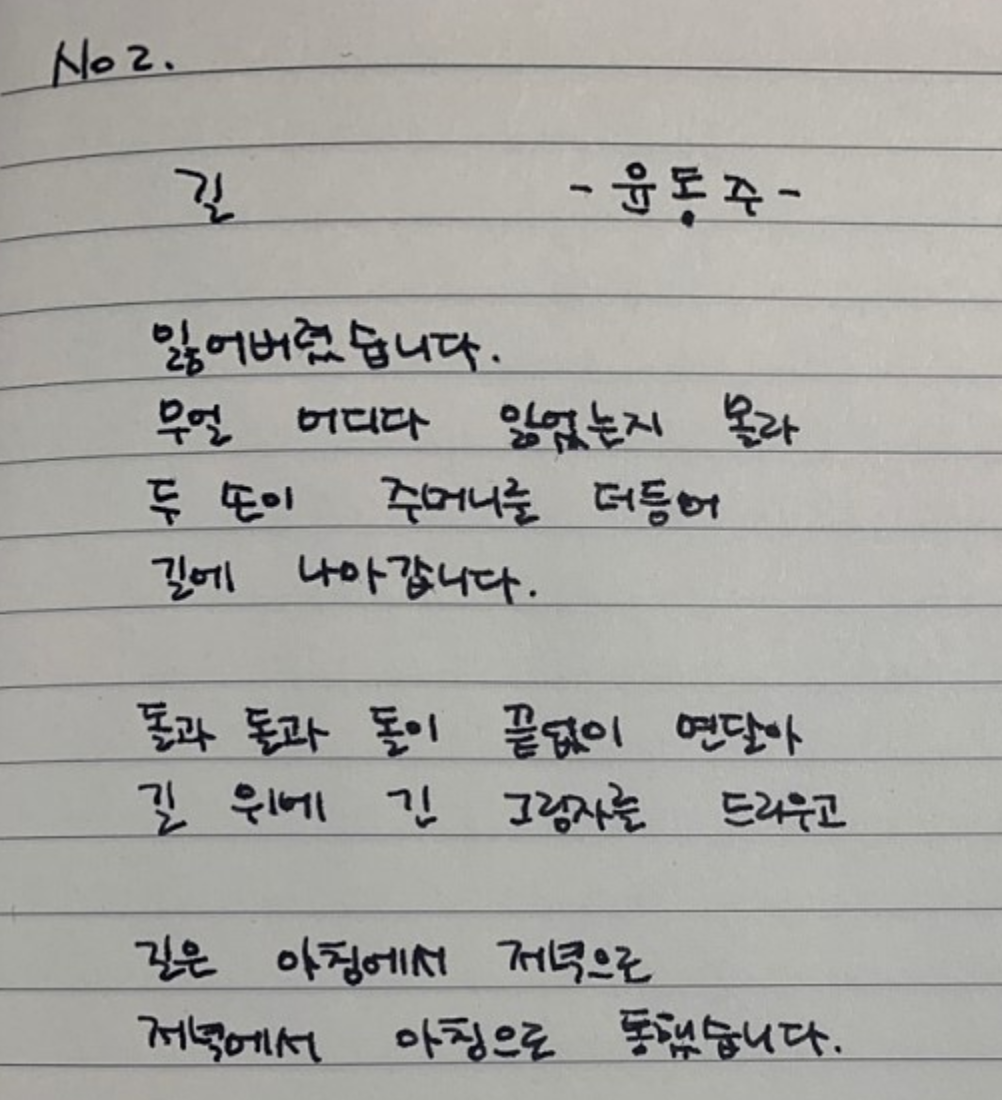 No 2.
길 - 윤동주 -
잃어버렸습니다.
무얼 어디다 잃었는지 몰라
두 손이 주머니를 더듬어
길에 나아갑니다.
돌과 돌과 돌이 끝없이 연달아
길 위에 긴 그림자를 드리우고
길은 아침에서 저녁으로
저녁에서 아침으로 통했습니다.